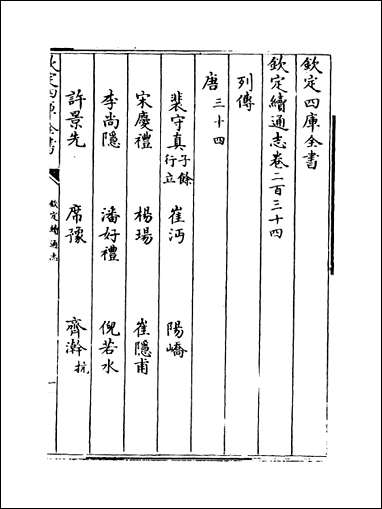 欽定四庫全書
欽定續通志卷二百三十四
列傳
唐 三十四
裴守真 子餘 行立 崔沔 陽嶠
宋慶禮 楊瑒 崔隱甫
李尚隱 潘好禮 倪若水
許景先 席豫 齊澣 抗
欽定四庫全書 欽定續通志 一